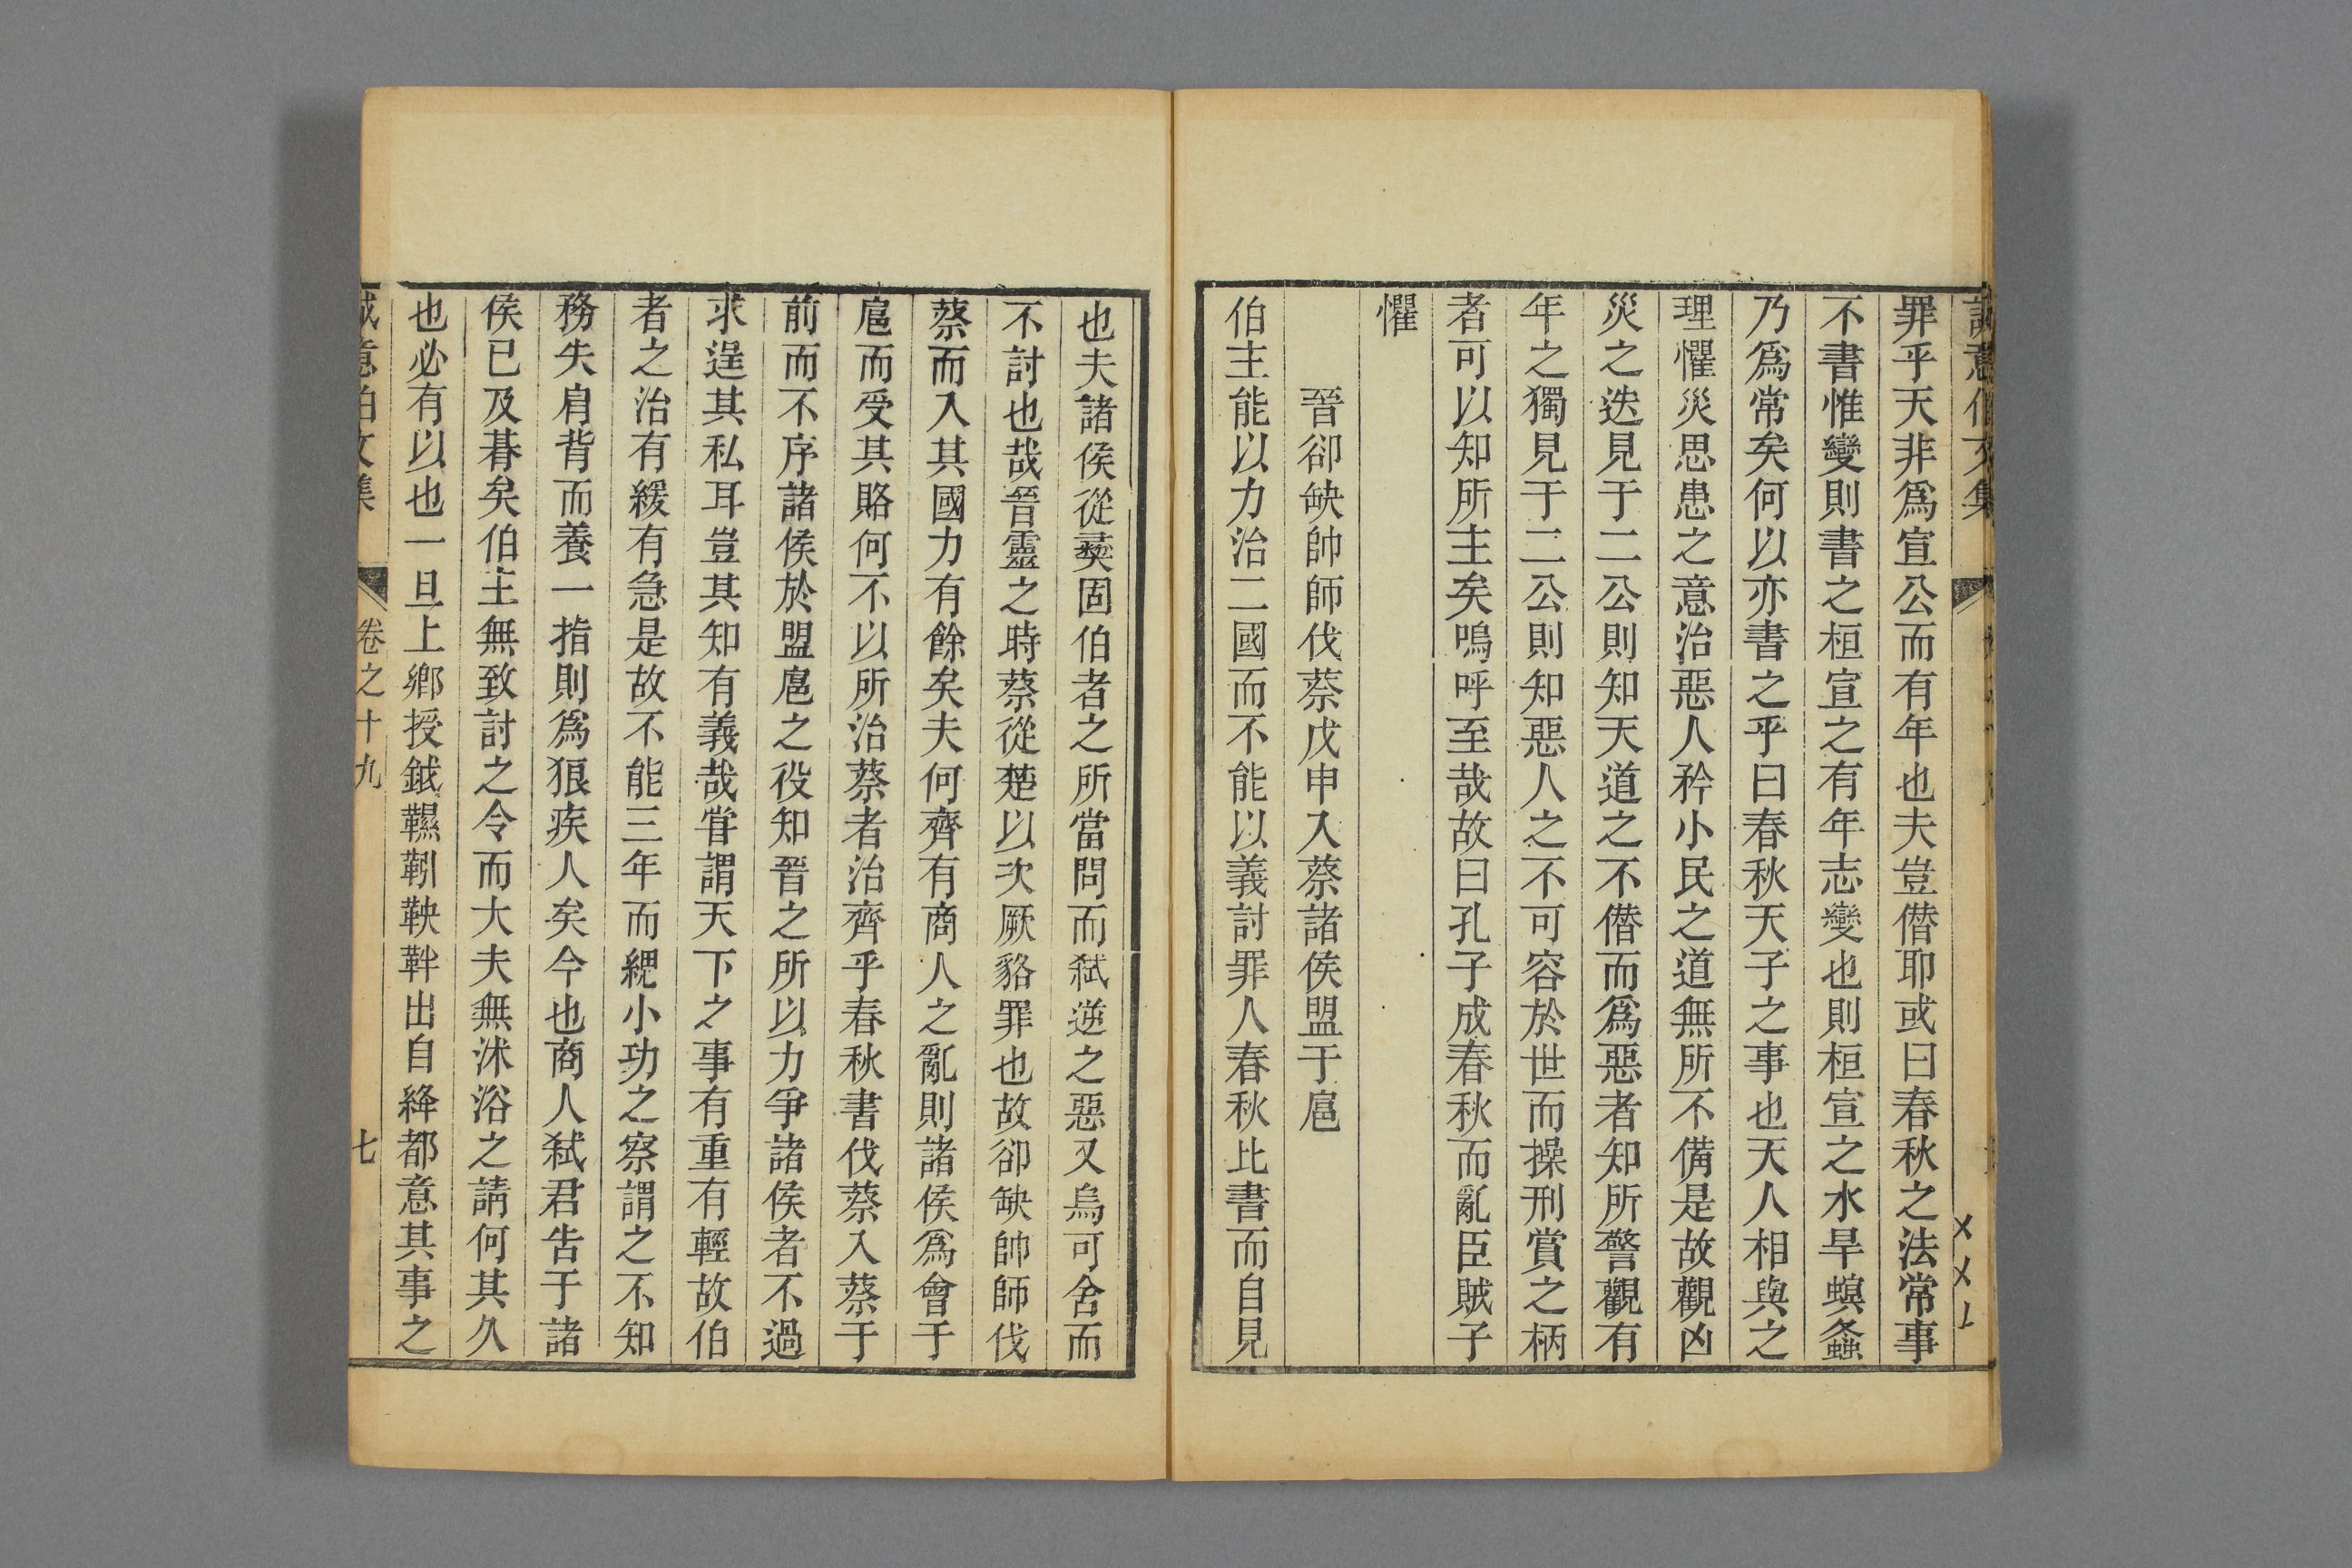 誠意伯文集
罪乎天非爲宣公而有年也夫豈僭耶或曰春秋之法常事
不書惟變則書之桓宣之有年志變也則桓宣之水旱螟螽
乃爲常矣何以亦書之乎曰春秋天子之事也天人相與之
理懼災思患之意治惡人矜小民之道無所不備是故觀凶
災之迭見于二公則知天道之不僭而爲惡者知所警觀有
年之獨見于二公則知惡人之不可容於世而操刑賞之柄
者可以知所主矣嗚呼至哉故曰孔子成春秋而亂臣賊子
懼
晉卻缺帥師伐蔡戊申入蔡諸侯盟于扈
伯主能以力治二國而不能以義討罪人春秋比書而自見
也夫諸侯從彛固伯者之所當問而弑逆之惡又烏可舍而
不討也哉晉靈之時蔡從楚以次厥貉罪也故卻缺帥師伐
蔡而入其國力有餘矣夫何齊有商人之亂則諸侯爲會于
扈而受其賂何不以所治蔡者治齊乎春秋書伐蔡入蔡于
前而不序諸侯於盟扈之役知晉之所以力爭諸侯者不過
求逞其私耳豈其知有義哉甞謂天下之事有重有輕故伯
者之治有緩有急是故不能三年而緦小功之察謂之不知
務失肩背而養一指則爲狼疾人矣今也商人弑君告于諸
侯已及朞矣伯主無致討之令而大夫無沐浴之請何其久
也必有以也一旦上鄉授鉞韅靷鞅靽出自絳都意其事之
誠意伯文集 卷之十九 七